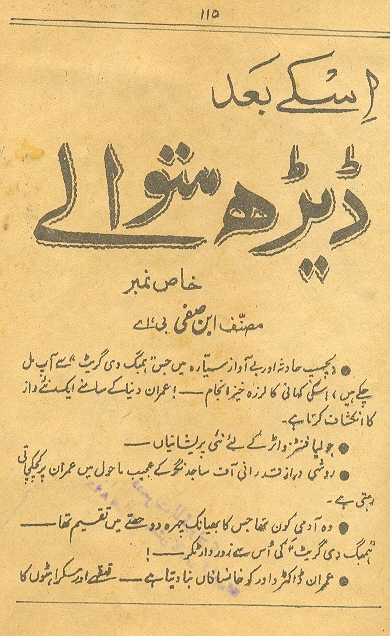 ۱۱۵
اِسکے بعد
ڈیڑھ متوالے
خاص نمبر
مصنّف ابن صفی بی۔ اے
● دلچسپ حادثہ اور بے آواز سیّارہ میں جس "ہمبگ دی گریٹ" سے آپ مل
چکے ہیں، اسکی کہانی کا لرزہ خیز انجام — ! عمران دنیا کے سامنے ایک نئے راز
کا انکشاف کرتا ہے۔
● جولیا فٹنر واٹر کے لئے نئی پریشانیاں —
● روشی دراز قد رانی آف ساجد نگر کے عجیب ماحول میں عمران پر کچکچاتی
رہتی ہے۔
● وہ آدمی کون تھا جس کا بھیانک چہرہ دو حصّے میں تقسیم تھا —
"ہمبگ دی گریٹ" کی اُس سے زور دار ٹکر — !
● عمران ڈاکٹر داور کو خانساماں بنا دیتا ہے — قہقہے اور مسکراہٹوں کا